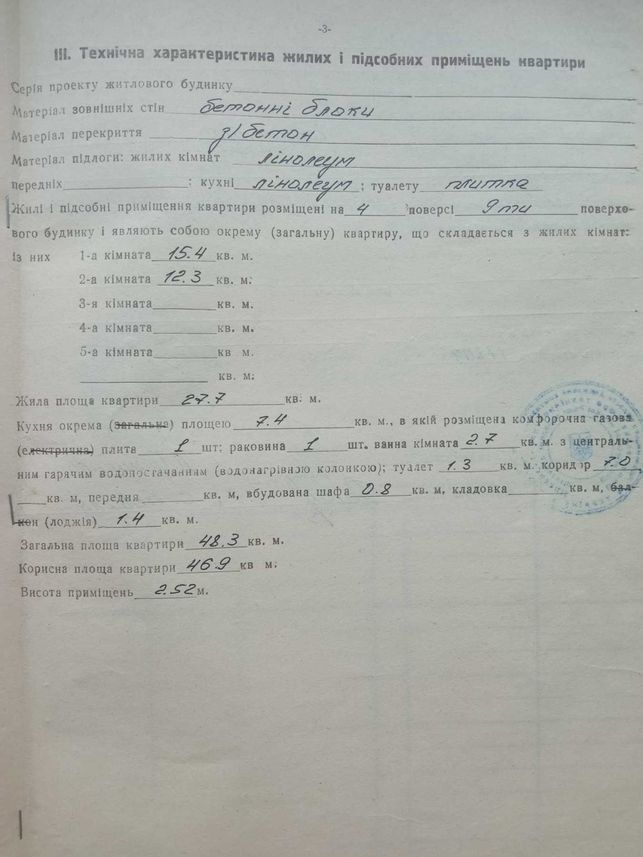 -3-
III. Технічна характеристика жилих і підсобних приміщень квартири
Серія проекту житлового будинку
Матеріал зовнішніх стін бетонні блоки
Матеріал перекриття з/бетон
Матеріал підлоги: жилих кімнат лінолеум
передніх ; кухні лінолеум ; туалету плитка
Жилі і підсобні приміщення квартири розміщені на 4 поверсі 9ти поверхо-
вого будинку і являють собою окрему (загальну) квартиру, що складається з жилих кімнат:
із них 1-а кімната 15.4 кв. м.
2-а кімната 12.3 кв. м.
3-я кімната кв. м.
4-а кімната кв. м.
5-а кімната кв м.
кв. м.
Жила площа квартири 27.7 кв. м.
Кухня окрема (загальна) площею 7.4 кв. м., в якій розміщена комфорочна газова
(електрична) плита 1 шт; раковина 1 шт. ванна кімната 2.7 кв. м. з централь-
ним гарячим водопостачанням (водонагрівною колонкою); туалет 1.3 кв. м. коридор 7.0
кв. м, передня кв. м, вбудована шафа 0.8 кв. м, кладовка кв. м, бал-
кон (лоджія) 1.4 кв. м.
Загальна площа квартири 48.3 кв. м.
Корисна площа квартири 46.9 кв м.
Висота приміщень 2.52 м.